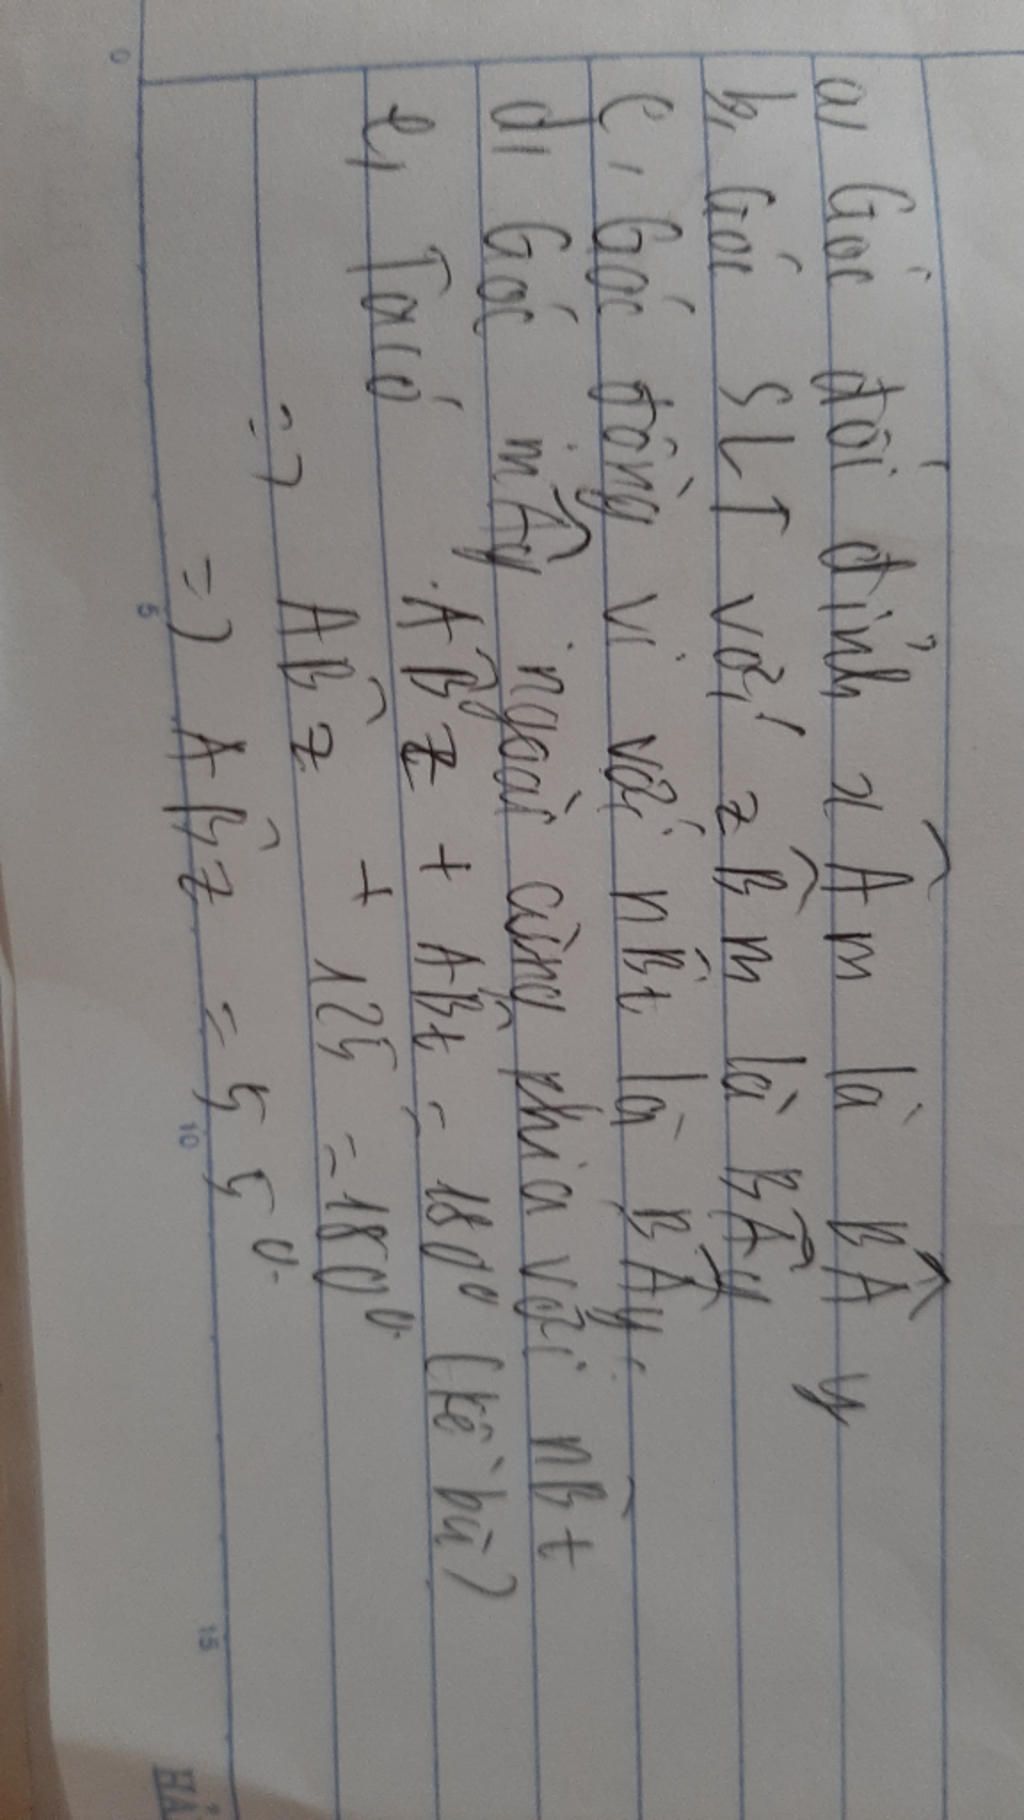 a, Góc đối đỉnh xÂm là BÂy
b, Góc SLT với zB̂m là BÂy
c, Góc đồng vị với nB̂t là BÂy.
d, Góc mÂy ngoài cùng phía với nBt
e, Ta có AB̂z + AB̂t = 180⁰ (kề bù)
=> AB̂z + 125 = 180⁰.
=> AB̂z = 55⁰.
0 5 10 15
HẢ